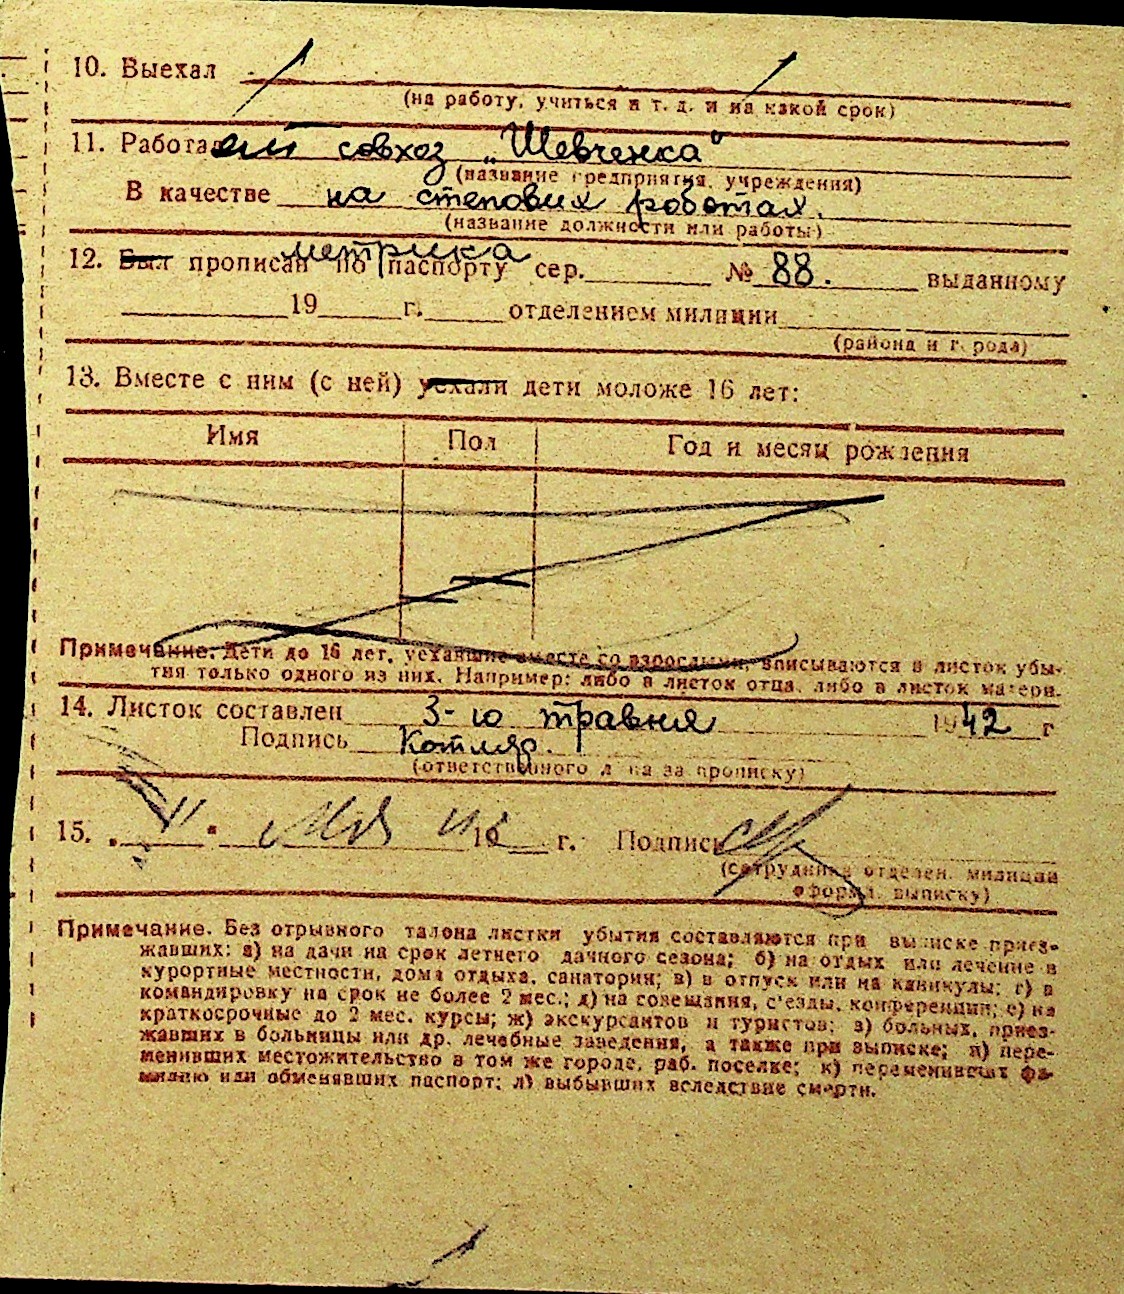 10. Выехал
(на работу, учиться и т. д. и на какой срок)
11. Работа совхоз „Шевченка"
(название предприятия, учреждения)
В качестве на степових роботах.
(название должности или работы)
метрика
12. Был прописан по паспорту сер. № 88. выданному
19 г. отделением милиции
(района и города)
13. Вместе с ним (с ней) уехали дети моложе 16 лет:
Имя Пол Год и месяц рождения
Примечание. Дети до 16 лет, уехавшие вместе со взрослыми, вписываются в листок убы-
тия только одного из них. Например: либо в листок отца, либо в листок матери.
14. Листок составлен 3-го травня 1942 г
Подпись Котляр.
(ответственного лица за прописку)
15. „ " 19 г. Подпись
(сотрудника отделен. милиции
оформл. выписку)
Примечание. Без отрывного талона листки убытия составляются при выписке приез-
жавших: а) на дачи на срок летнего дачного сезона; б) на отдых или лечение в
курортные местности, дома отдыха, санатории; в) в отпуск или на каникулы; г) в
командировку на срок не более 2 мес.; д) на совещания, с'езды, конференции; е) на
краткосрочные до 2 мес. курсы; ж) экскурсантов и туристов; з) больных, приез-
жавших в больницы или др. лечебные заведения, а также при выписке; и) пере-
менивших местожительство в том же городе, раб. поселке; к) переменивших фа-
милию или обменявших паспорт; л) выбывших вследствие смерти.